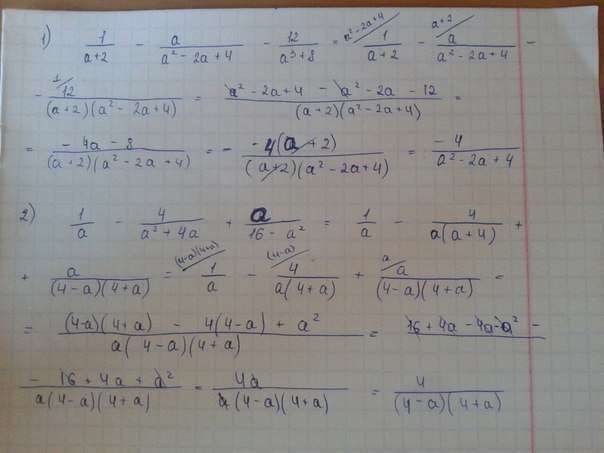 1) 1/(a+2) - a/(a² - 2a + 4) - 12/(a³ + 8) = a² - 2a + 4 / 1/(a+2) - a+2 / a/(a² - 2a + 4) -
- 1/ 12/((a+2)(a² - 2a + 4)) = (a² - 2a + 4 - a² - 2a - 12)/((a+2)(a² - 2a + 4)) =
= (- 4a - 8)/((a+2)(a² - 2a + 4)) = - (- 4(a + 2))/((a+2)(a² - 2a + 4)) = (- 4)/(a² - 2a + 4)
2) 1/a - 4/(a² + 4a) + a/(16 - a²) = 1/a - 4/(a(a+4)) +
+ a/((4-a)(4+a)) = (4-a)(4+a) / 1/a - (4-a) / 4/(a(4+a)) + a / a/((4-a)(4+a)) =
= ((4-a)(4+a) - 4(4-a) + a²)/(a(4-a)(4+a)) = 16 + 4a - 4a - a² -
(- 16 + 4a + a²)/(a(4-a)(4+a)) = 4a/(a(4-a)(4+a)) = 4/((4-a)(4+a))